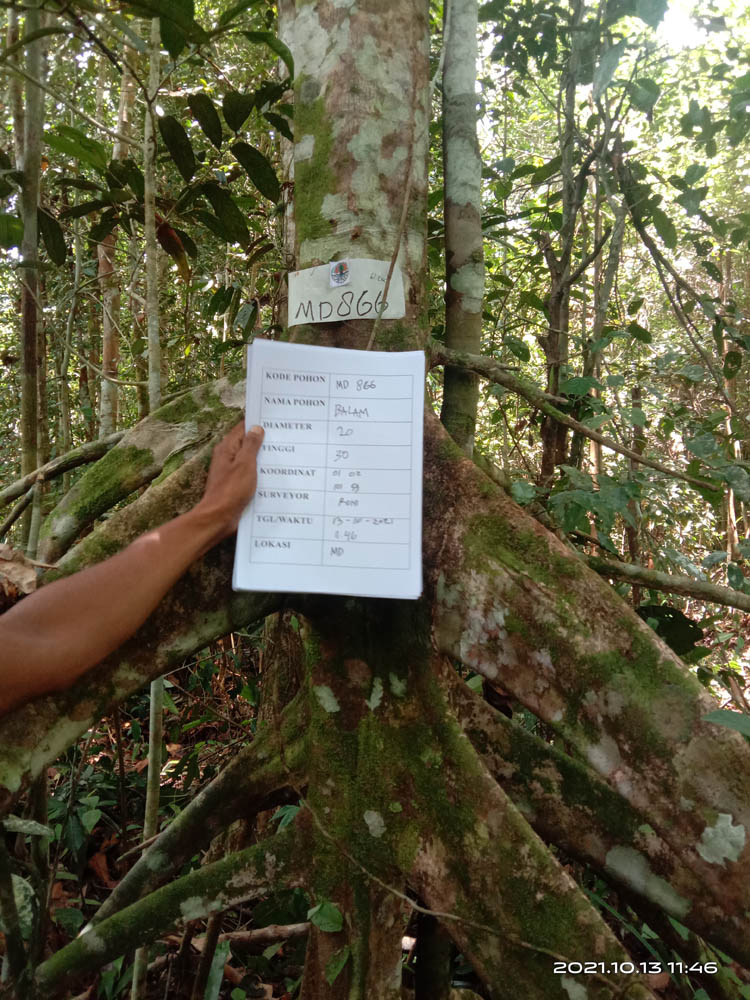 MD866
KODE POHON MD 866
NAMA POHON BALAM
DIAMETER 20
TINGGI 30
KOORDINAT 01 02
SURVEYOR RONI
TGL/WAKTU 13-10-2021
11.46
LOKASI MD
2021.10.13 11:46